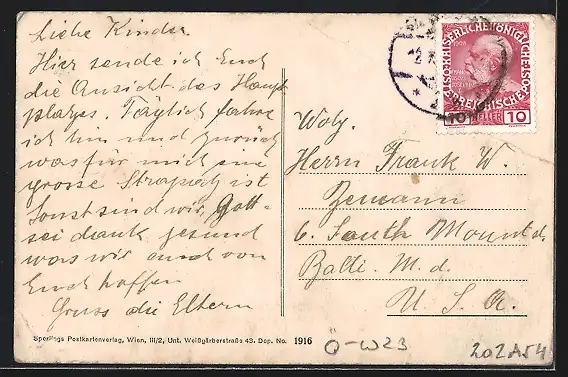 Liebe Kinder
Hier sende ich Euch
die Ansicht des Haupt
platzes. Täglich fahre
ich hin und zurück
was für mich eine
grosse Strapatz ist
Sonst sind wir, Gott-
sei dank gesund
was wir auch von
Euch hoffen
Gruss die Eltern
Sperlings Postkartenverlag, Wien, III/2, Unt. Weißgärberstraße 43. Dep. No. 1916
KAISERLICHE KÖNIGLICHE
ÖSTERREICHISCHE POST
1908
10 HELLER 10
Herrn Frank W.
Zemann
6. South Mount st.
Balti. M. d.
U. S. A.
Ö-W23
202A54